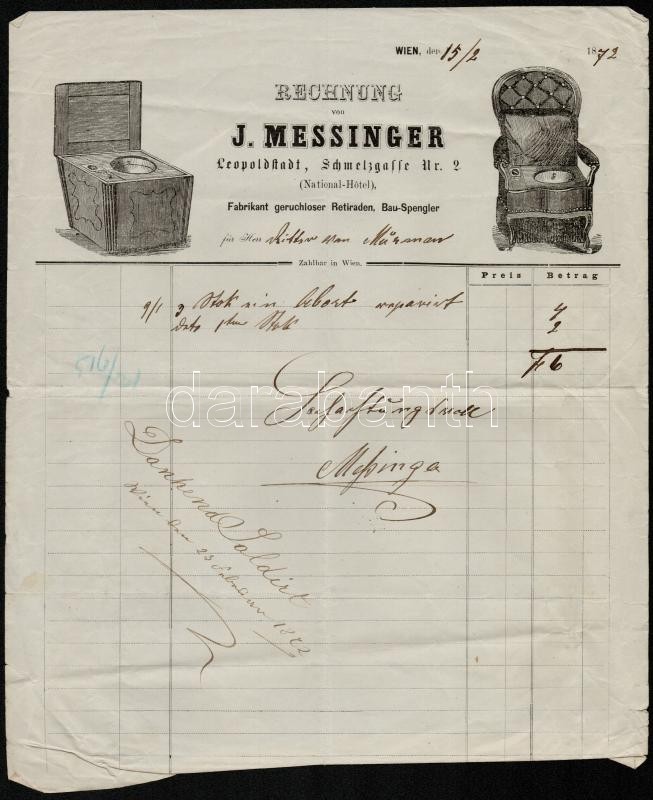 WIEN, den 15/2 1872
RECHNUNG
von
J. MESSINGER
Leopoldstadt, Schmelzgasse Nr. 2
(National-Hôtel),
Fabrikant geruchloser Retiraden, Bau-Spengler
für Herr Ritter von
Zahlbar in Wien.
Preis Betrag
9/1 3 Stok ein Abort reparirt 4
deto 1ten Stok 2
f 6
darabanth
Dankend Saldirt
Wien den 23 Februar 1872